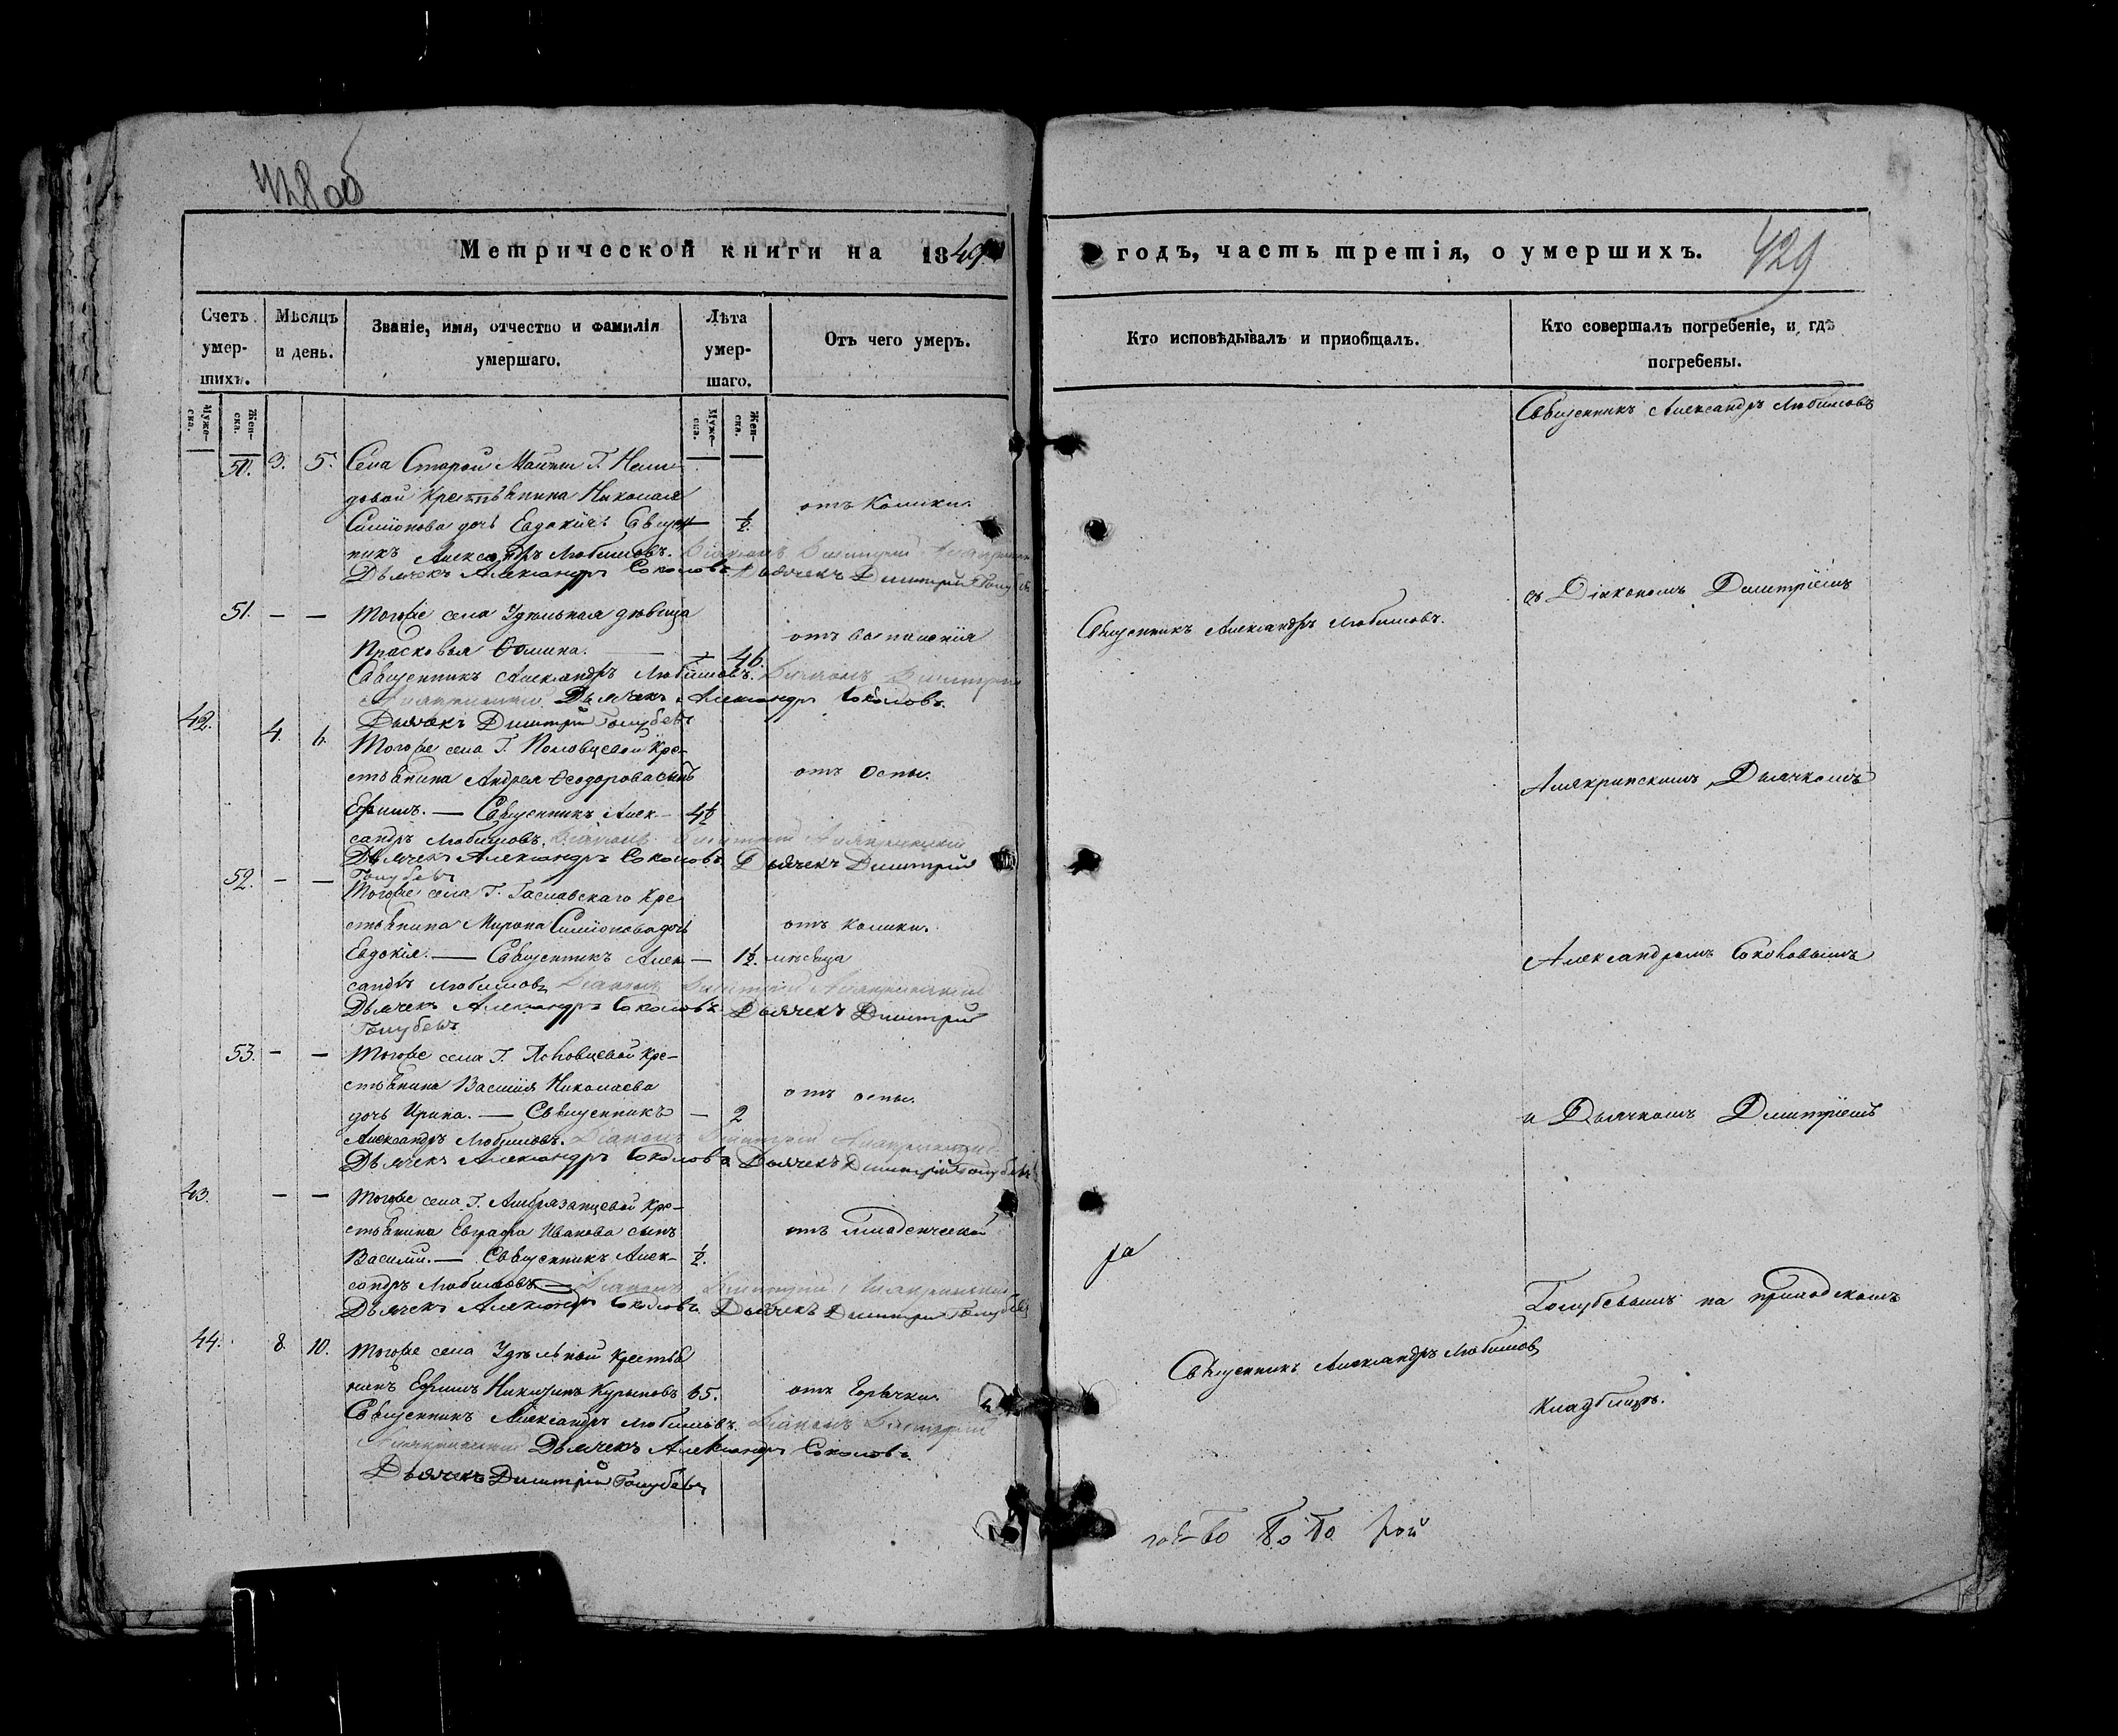 428 об
Метрической книги на 1849
Счетъ умер-шихъ.
Мѣсяцъ и день.
Званіе, имя, отчество и фамилія умершаго.
Лѣта умер-шаго.
Отъ чего умеръ.
Муже-ска.
Жен-ска.
Муже-ска.
Жен-ска.
50. 3. 5. Села Старой Майны Г.
довой крестьянина Николая
отъ колики.
Симіонова дочь Евдокія. Священ- — ½.
никъ Александръ Любимовъ. Діаконъ Димитрій
Дьячекъ Александръ Соколовъ. Дьячекъ Димитрій Голубевъ
51. — — Тогоже села Удѣльная дѣвица
отъ воспаленія
Прасковья Фомина. — 46.
Священникъ Александръ Любимовъ. Діаконъ Димитрій
Алякринскій Дьячекъ Александръ Соколовъ.
Дьячекъ Димитрій Голубевъ
42. 4. 6. Тогоже села Г. Половцевой кре-
стьянина Андрея Ѳеодорова сынъ
отъ оспы.
Ефимъ. — Священникъ Алек- 4½
сандръ Любимовъ. Діаконъ Димитрій Алякринскій
Дьячекъ Александръ Соколовъ. Дьячекъ Димитрій
Голубевъ
52. — — Тогоже села Г. кре
стьянина Мирона Симіонова дочь
отъ колики.
Евдокія. — Священникъ Алек — 1½. мѣсяца
сандръ Любимовъ Діаконъ Димитрій Алякринскій
Дьячекъ Александръ Соколовъ Дьячекъ Димитрій
Голубевъ
53. — — Тогоже села Г. Половцевой кре-
стьянина Василія Николаева
отъ оспы.
дочь Ирина. — Священникъ — 2
Александръ Любимовъ. Діаконъ Димитрій Алякринскій
Дьячекъ Александръ Соколовъ Дьячекъ Димитрій Голубевъ
43. — — Тогоже села Г. Амбразанцевой кре-
стьянина Евграфа Иванова сынъ
отъ младенческой
Василій. — Священникъ Алек- ½.
сандръ Любимовъ — Діаконъ Димитрій Алякринскій
Дьячекъ Александръ Соколовъ Дьячекъ Димитрій Голубевъ
44. 8. 10. Тогоже села Удѣльной крестья
нинъ Ефимъ Никитинъ 65. отъ Горячки.
Священникъ Александръ Любимовъ. Діаконъ Димитрій
Алякринскій Дьячекъ Александръ Соколовъ.
Дьячекъ Димитрій Голубевъ
годъ, часть третія, о умершихъ.
429
Кто исповѣдывалъ и пріобщалъ.
Кто совершалъ погребеніе, и гдѣ погребены.
Священникъ Александръ Любимовъ
съ Діакономъ Димитріемъ
Священникъ Александръ Любимовъ.
Алякринскимъ, Дьячкомъ
Александромъ Соколовымъ
и Дьячкомъ Димитріемъ
Голубевымъ на приходскомъ
Священникъ Александръ Любимовъ
кладбищѣ.